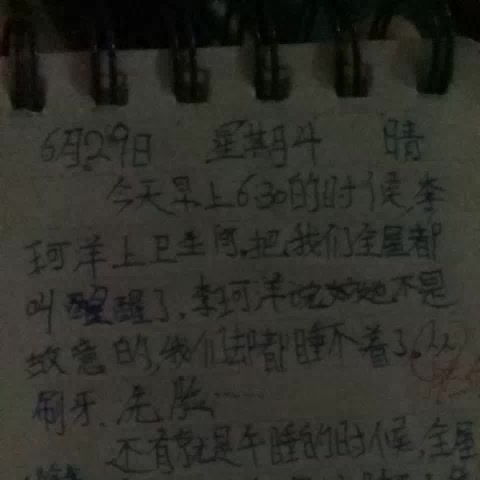 6月29日 星期4 晴
今天早上6:30的时候,李
珂洋上卫生间,把我们全屋都
叫醒醒了,李珂洋说她不是
故意的,我们却都睡不着了。
刷牙、洗脸……
还有就是午睡的时候,全屋